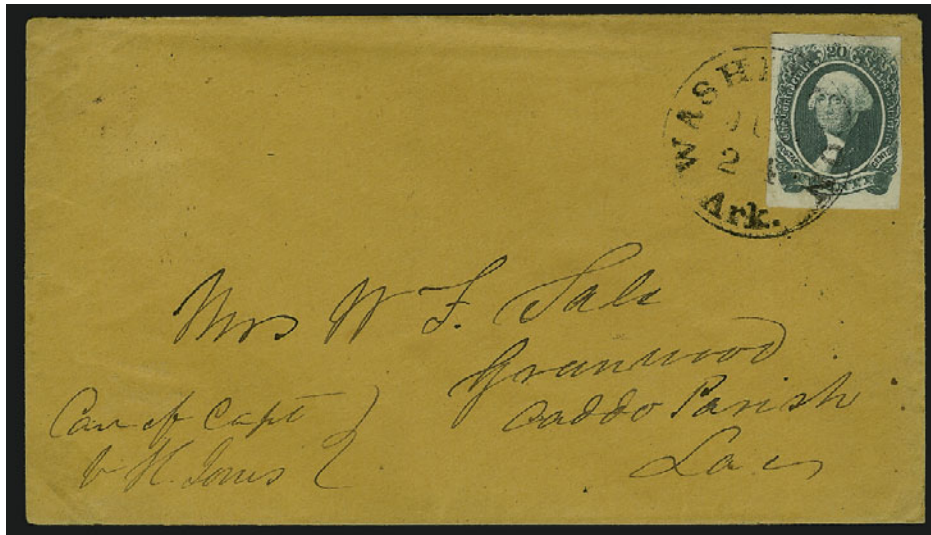 WASHI
20
JU
2
Ark.
Mrs W F. Sale
Greenwood
Caddo Parish
La
Care of Capt
Jones